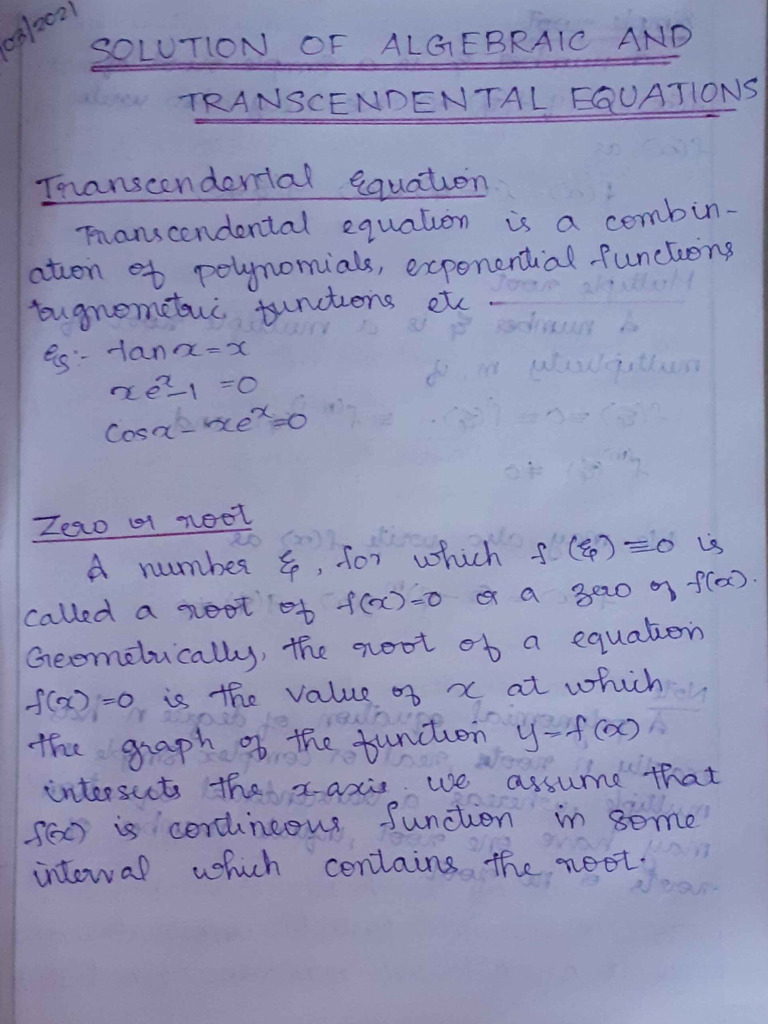 03/2021
SOLUTION OF ALGEBRAIC AND
TRANSCENDENTAL EQUATIONS
Transcendental Equation
Transcendental equation is a combin-
ation of polynomials, exponential functions
trignometric functions etc
Eg:- tan x = x
xeˣ-1 = 0
Cosx - xeˣ=0
Zero or root
A number ξ, for which f(ξ) ≡ 0 is
called a root of f(x)=0 or a zero of f(x).
Geometrically, the root of a equation
f(x)=0 is the value of x at which
the graph of the function y=f(x)
intersects the x-axis. we assume that
f(x) is contineous function in some
interval which contains the root.